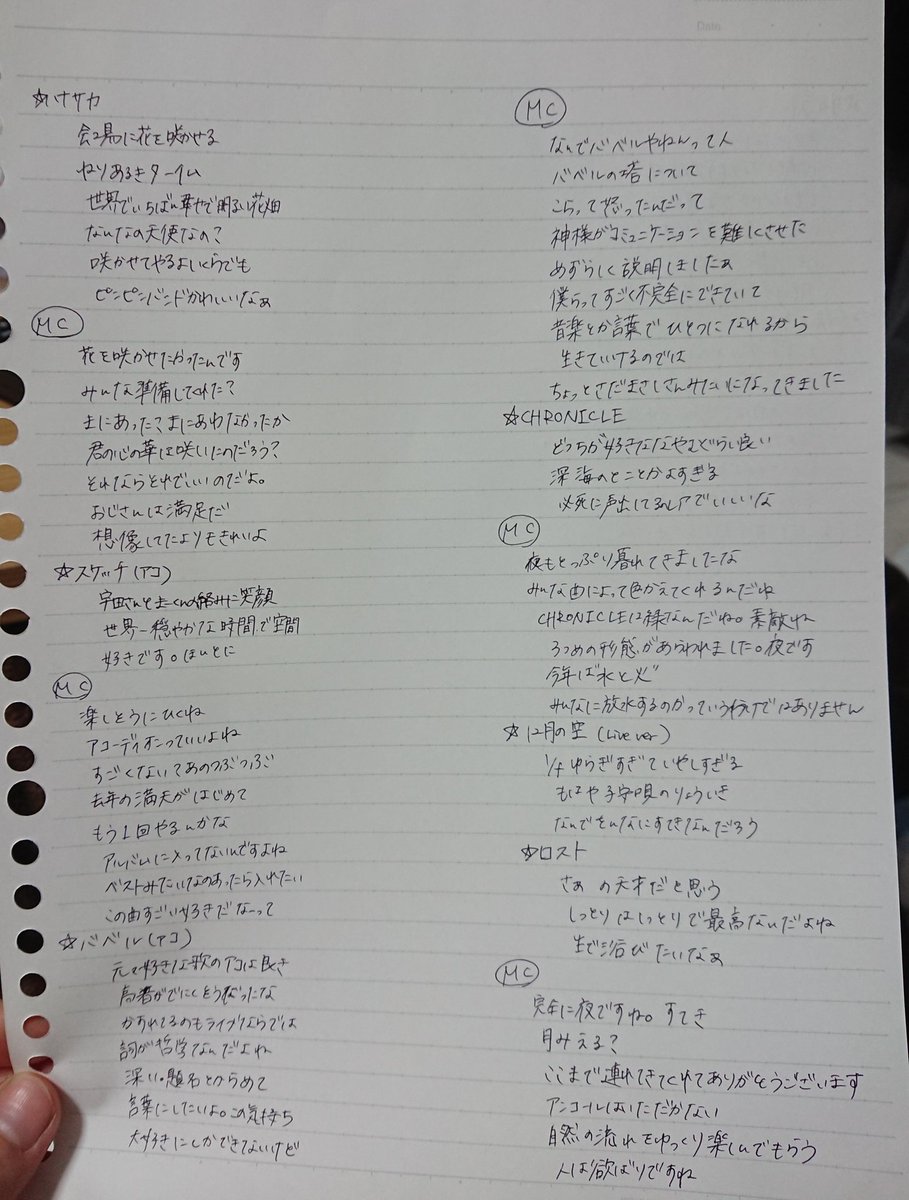 Date
☆ハナサカ
会場に花を咲かせる
ねりあるきターイム
世界でいちばん華やで明るい花畑
なんなの天使なの?
咲かせてやるよいくらでも
ピンピンバンドかわいいなぁ
MC
花を咲かせたかったんです
みんな準備してくれた?
まにあった?まにあわなかったか
君の心の華は咲いたのだろう?
それならそれでいいのだよ。
おじさんは満足だ
想像してたよりもきれいよ
☆スケッチ(アコ)
宇田さんと土くんの絡みに笑顔
世界一穏やかな時間で空間
好きです。ほんとに
MC
楽しそうにひくね
アコーディオンっていいよね
すごくないてあのつぶつぶ
去年の満天がはじめて
もう1回やるんかな
アルバムに入ってないんですよね
ベストみたいなのあったら入れたい
この曲すごい好きだなーって
☆バベル(アコ)
元々好きな歌のアコは良き
高音がでにくそうだったな
かすれてるのもライブならでは
詞が哲学なんだよね
深い。題名とからめて
言葉にしたいよ。この気持ち
大好きにしかできないけど
MC
なんでバベルやねんって人
バベルの塔について
こらって怒ったんだって
神様がコミュニケーションを難しくさせた
めずらしく説明しましたぁ
僕らってすごく不完全にできていて
音楽とか言葉でひとつになれるから
生きていけるのでは
ちょっとさだまさしさんみたいになってきました
☆CHRONICLE
どっちが好きななやむぐらい良い
深海のとことかよすぎる
必死に声出してるのレアでいいな
MC
夜もとっぷり暮れてきましたな
みんな曲によって色かえてくれるんだね
CHRONICLEは緑なんだね。素敵ね
3つめの形態があらわれました。夜です
今年は"水と火"
みんなに放水するのかっていう訳ではありません
☆12月の空(Live ver)
1/fゆらぎすぎていやしすぎる
もはや子守唄のりょういき
なんでそんなにすてきなんだろう
☆ロスト
さぁ の天才だと思う
しっとりはしっとりで最高なんだよね
生で浴びたいなぁ
MC
完全に夜ですね。すてき
月みえる?
ここまで連れてきてくれてありがとうございます
アンコールはいただかない
自然の流れをゆっくり楽しんでもらう
人は欲ばりですね